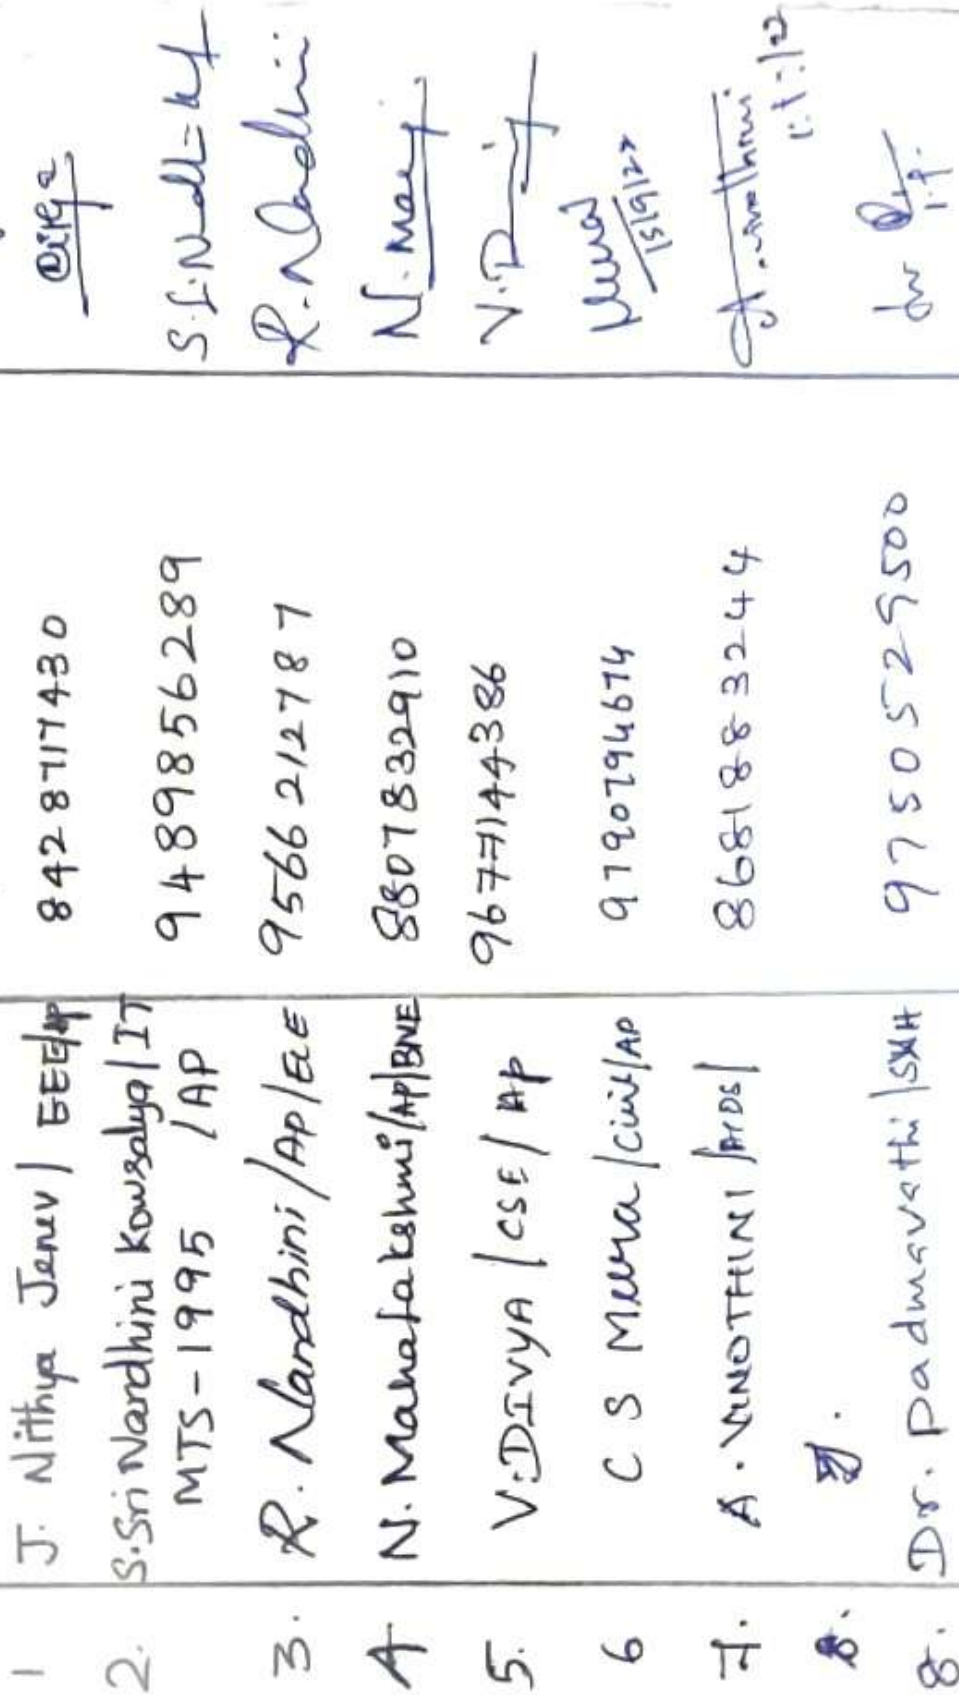 1 J. Nithya Jenev / EEE/AP 8428717430
2. S.Sri Nandhini Kowsalya/IT 9489856289 S.S.Nandh
MTS-1995 /AP
3. R. Nandhini/AP/EEE 9566212787 R.Nadhini
4 N. Mahalakshmi/AP/BME 8807832910 N.Mary
5. V.DIVYA / CSE / AP 9677144386 V.D
6 C S Meera / Civil/AP 9790794674 Meera
15/9/22
7. A. VINOTHINI / AIDS / 8681883244
8. Dr. Padmavathi /S&H 9750529500